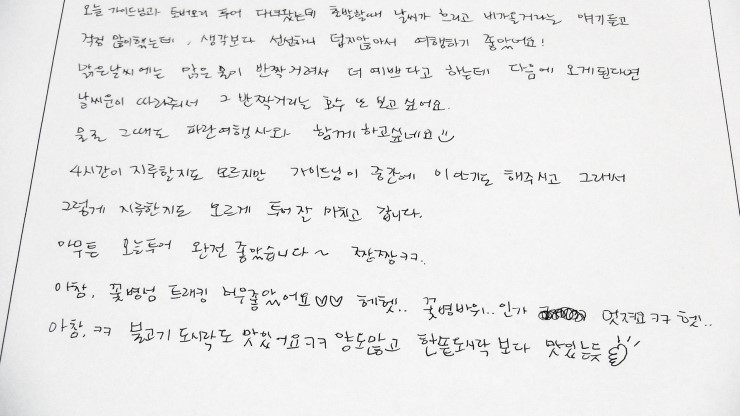 오늘 가이드님과 돈보꼬리 투어 다녀왔는데 출발할때 날씨가 흐리고 비가올거라는 얘기듣고
걱정 많이했는데, 생각보다 선선하니 덥지않아서 여행하기 좋았어요!
맑은날씨에는 맑은 물이 반짝거려서 더 예쁘다고 하는데 다음에 오게된다면
날씨운이 따라줘서 그 반짝거리는 호수 또 보고싶어요.
물론 그때도 파란여행사와 함께하고싶네요
4시간이 지루할지도 모르지만 가이드님이 중간에 이야기도 해주시고 그래서
그렇게 지루한지도 모르게 투어 잘 마치고 갑니다.
아무튼 오늘투어 완전 좋았습니다~ 짱짱ㅋㅋ..
아참, 꽃병섬 트래킹 너무좋았어요♡♡ 헤헷.. 꽃병바위..인가 멋져요ㅋㅋ 헷..
아참, ㅋㅋ 불고기 도시락도 맛있어요ㅋㅋ 양도많고 한솥도시락 보다 맛있는듯